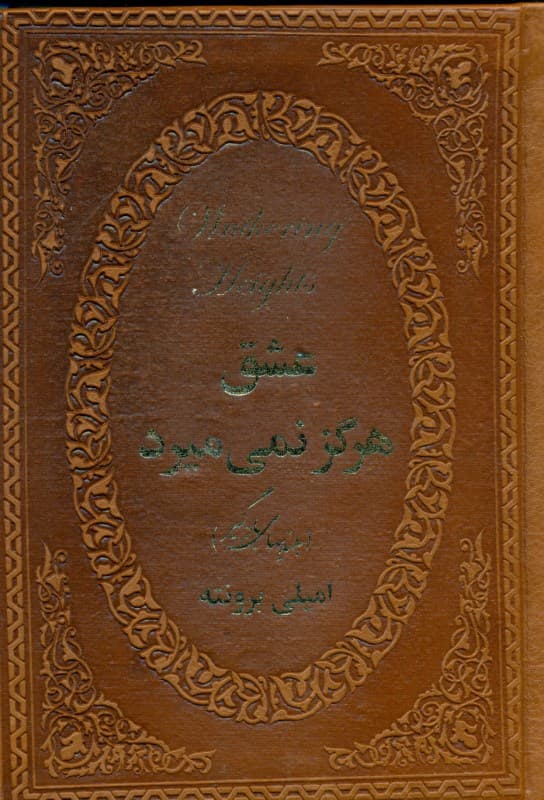 Wuthering
Heights
عشق
هرگز نمی میرد
(بلندیهای بادگیر)
امیلی برونته